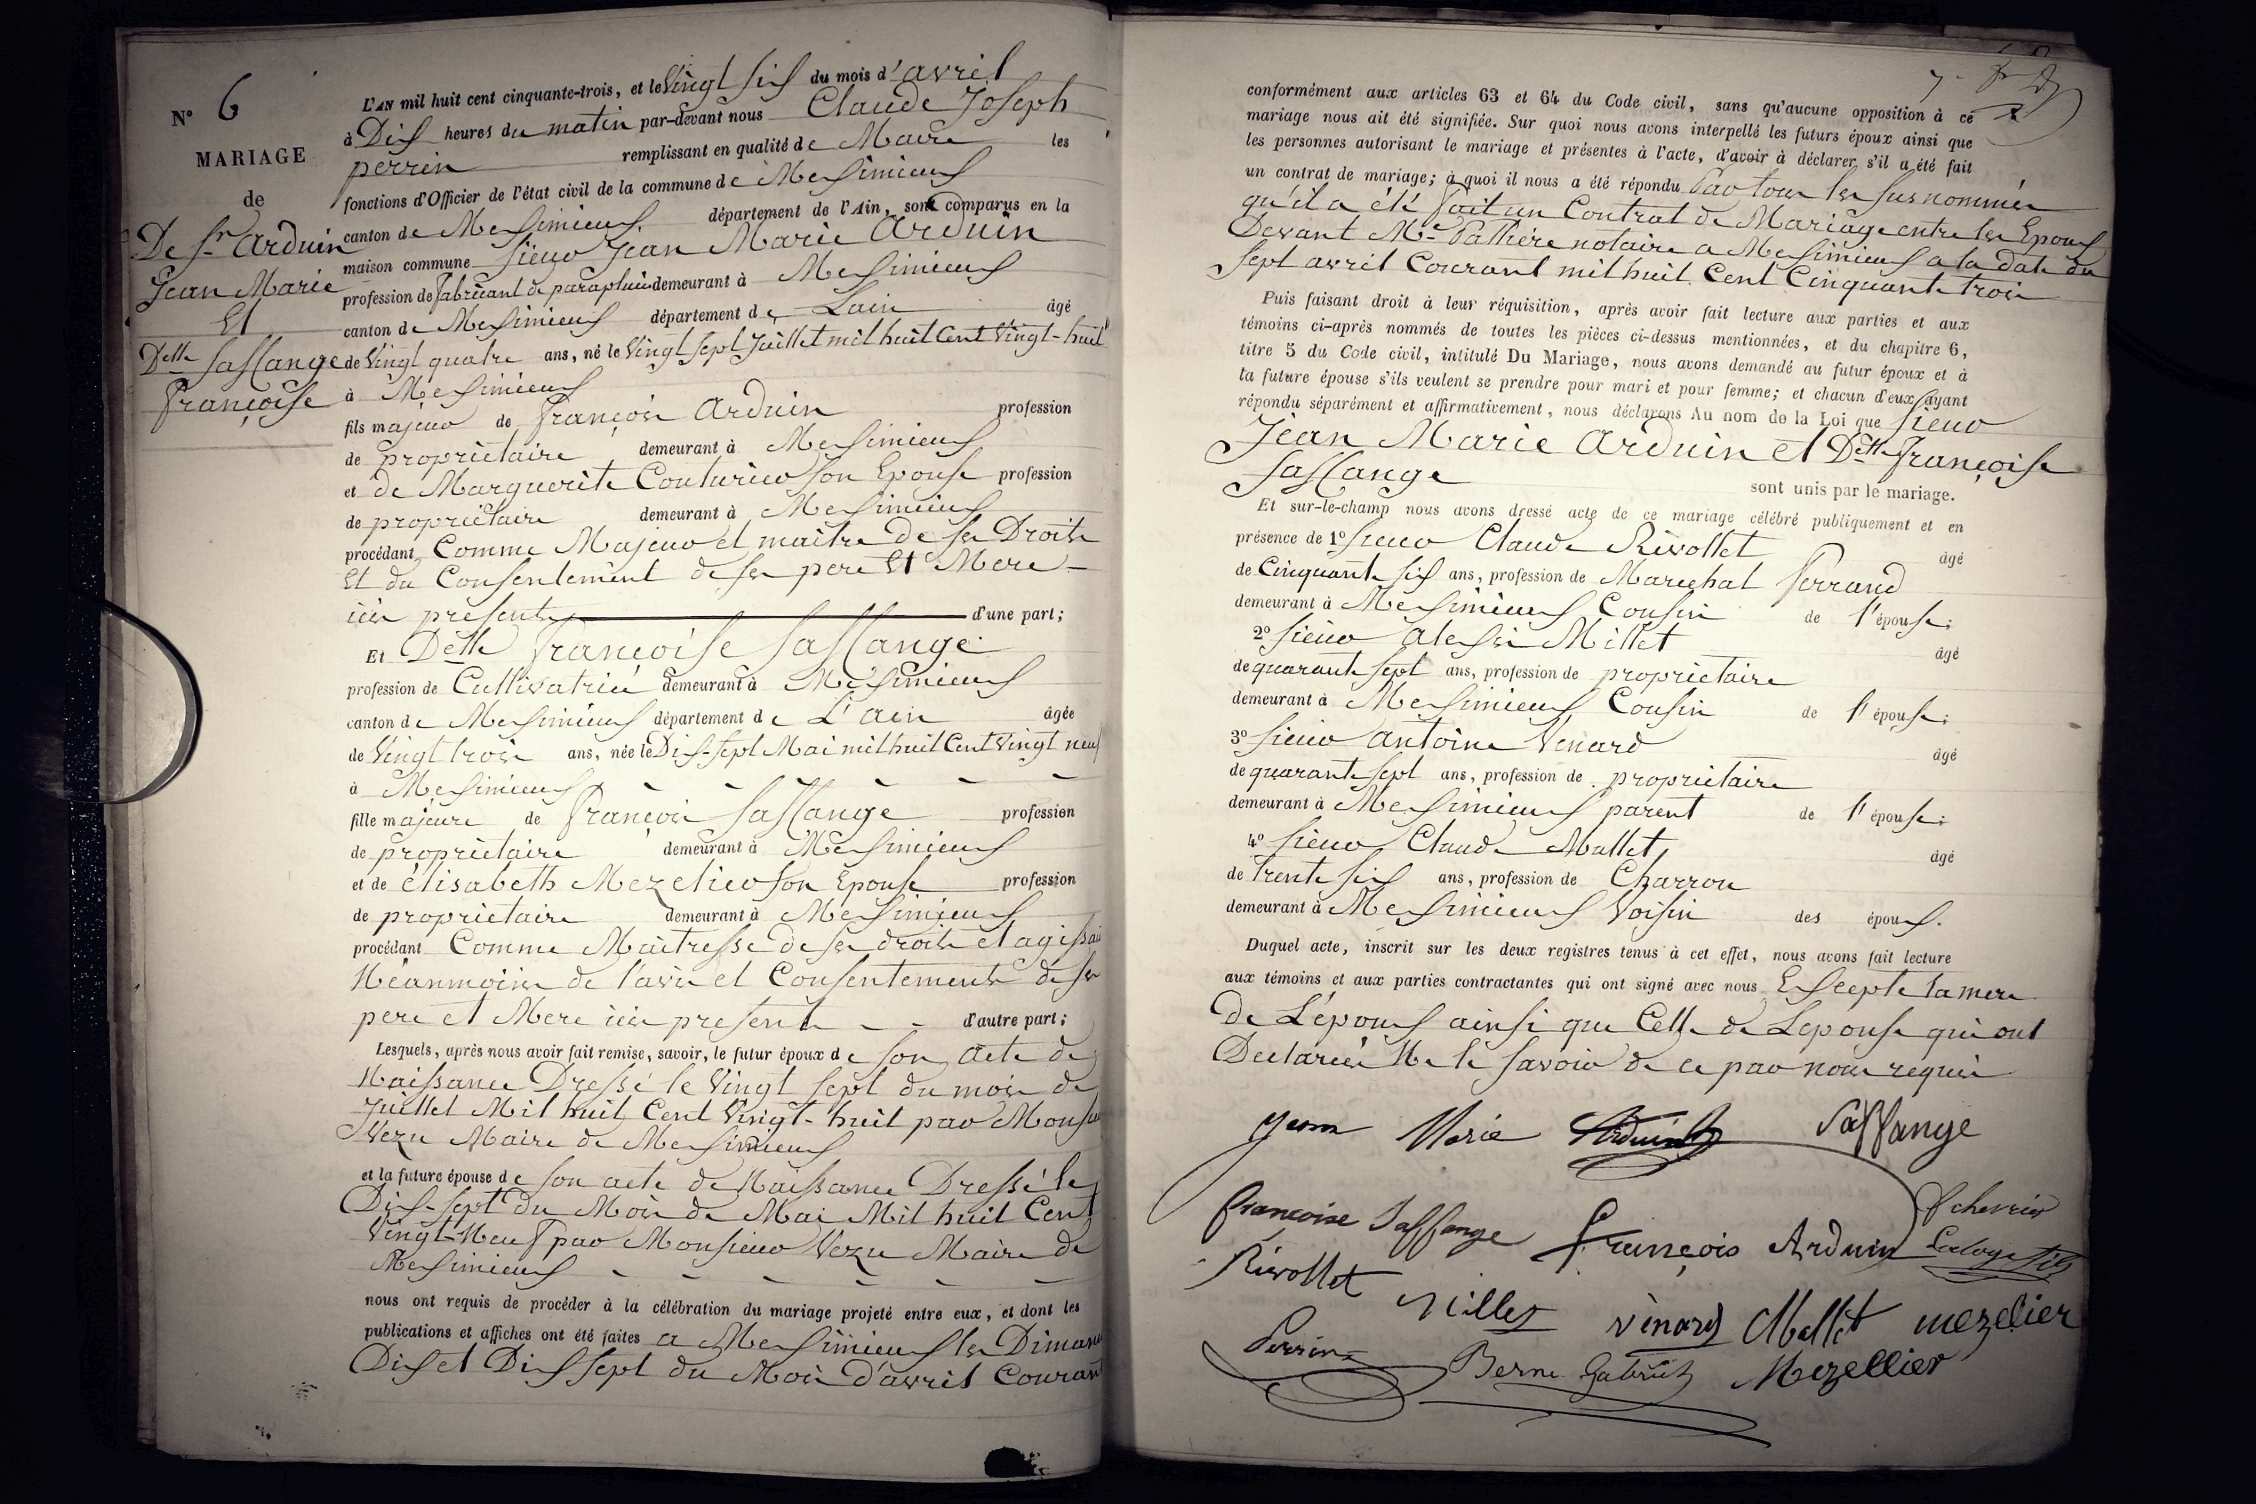 N° 6
MARIAGE
de
De Sr Arduin
Jean Marie
Et
Delle Saffange
Françoise
L'AN mil huit cent cinquante-trois, et le Vingt Six du mois d'avril
à Dix heures du matin par-devant nous Claude Joseph
perrin remplissant en qualité de Maire les
fonctions d'Officier de l'état civil de la commune de Meximieux
canton de Meximieux département de l'Ain, sont comparus en la
maison commune Sieur Jean Marie Arduin
profession de fabricant de parapluie demeurant à Meximieux
canton de Meximieux département de Lain âgé
de Vingt quatre ans, né le Vingt Sept Juillet mil huit Cent Vingt-huit
à Meximieux
fils majeur de François Arduin profession
de propriétaire demeurant à Meximieux
et de Marguerite Couturier Son Epouse profession
de propriétaire demeurant à Meximieux
procédant Comme Majeur et maître de Ses Droits
Et du Consentement de Ses pere Et Mere
ici presents d'une part;
Et Delle Françoise Saffange
profession de Cultivatrice demeurant à Meximieux
canton de Meximieux département de L'ain âgée
de Vingt trois ans, née le Dix-Sept Mai mil huit Cent Vingt neuf
à Meximieux
fille majeure de François Saffange profession
de propriétaire demeurant à Meximieux
et de élisabeth Mezelier Son Epouse profession
de propriétaire demeurant à Meximieux
procédant Comme Maitresse de Ses droits et agissan
Néanmoins de l'avis et Consentements de Ses
pere et Mere ici presents d'autre part;
Lesquels, après nous avoir fait remise, savoir, le futur époux de Son Acte de
Naissance Dressé le Vingt Sept du mois de
Juillet Mil huit Cent Vingt-huit par Monsieur
Vezu Maire de Meximieux
et la future épouse de Son acte de Naissance Dressé le
Dix-Sept du Mois de Mai Mil huit Cent
Vingt-Neuf par Monsieur Vezu Maire de
Meximieux
nous ont requis de procéder à la célébration du mariage projeté entre eux, et dont les
publications et affiches ont été faites a Meximieux les Diman
Dix et Dix Sept du Mois d'avril Courant
conformément aux articles 63 et 64 du Code civil, sans qu'aucune opposition à ce
mariage nous ait été signifiée. Sur quoi nous avons interpellé les futurs époux ainsi que
les personnes autorisant le mariage et présentes à l'acte, d'avoir à déclarer s'il a été fait
un contrat de mariage; à quoi il nous a été répondu Par tous les Susnommés
qu'il a été fait un Contrat de Mariage entre les Epoux
Devant Me Pathère notaire a Meximieux a la date du
Sept avril Courant mil huit Cent Cinquante trois
Puis faisant droit à leur réquisition, après avoir fait lecture aux parties et aux
témoins ci-après nommés de toutes les pièces ci-dessus mentionnées, et du chapitre 6,
titre 5 du Code civil, intitulé Du Mariage, nous avons demandé au futur époux et à
la future épouse s'ils veulent se prendre pour mari et pour femme; et chacun d'eux ayant
répondu séparément et affirmativement, nous déclarons Au nom de la Loi que Sieur
Jean Marie Arduin et Delle Françoise
Saffange sont unis par le mariage.
Et sur-le-champ nous avons dressé acte de ce mariage célébré publiquement et en
présence de 1° Sieur Claude Rivollet âgé
de Cinquante Six ans, profession de Marechal ferrand
demeurant à Meximieux Cousin de l'épouse;
2° Sieur Alexis Millet âgé
de quarante Sept ans, profession de propriétaire
demeurant à Meximieux Cousin de l'épouse;
3° Sieur Antoine Venard âgé
de quarante Sept ans, profession de propriétaire
demeurant à Meximieux parent de l'épouse;
4° Sieur Claude Mallet âgé
de trente Six ans, profession de Charron
demeurant à Meximieux Voisin des époux.
Duquel acte, inscrit sur les deux registres tenus à cet effet, nous avons fait lecture
aux témoins et aux parties contractantes qui ont signé avec nous Excepté la mere
de L'époux ainsi que Celle de Lepouse qui ont
Declarées Ne le Savoir de ce par nous requis
Jean Marie Arduin Saffange
françoise Saffange françois Arduin
Rivollet Millet Vénard Mallet mezelier
Perrin Berne Gabriel Mezellier